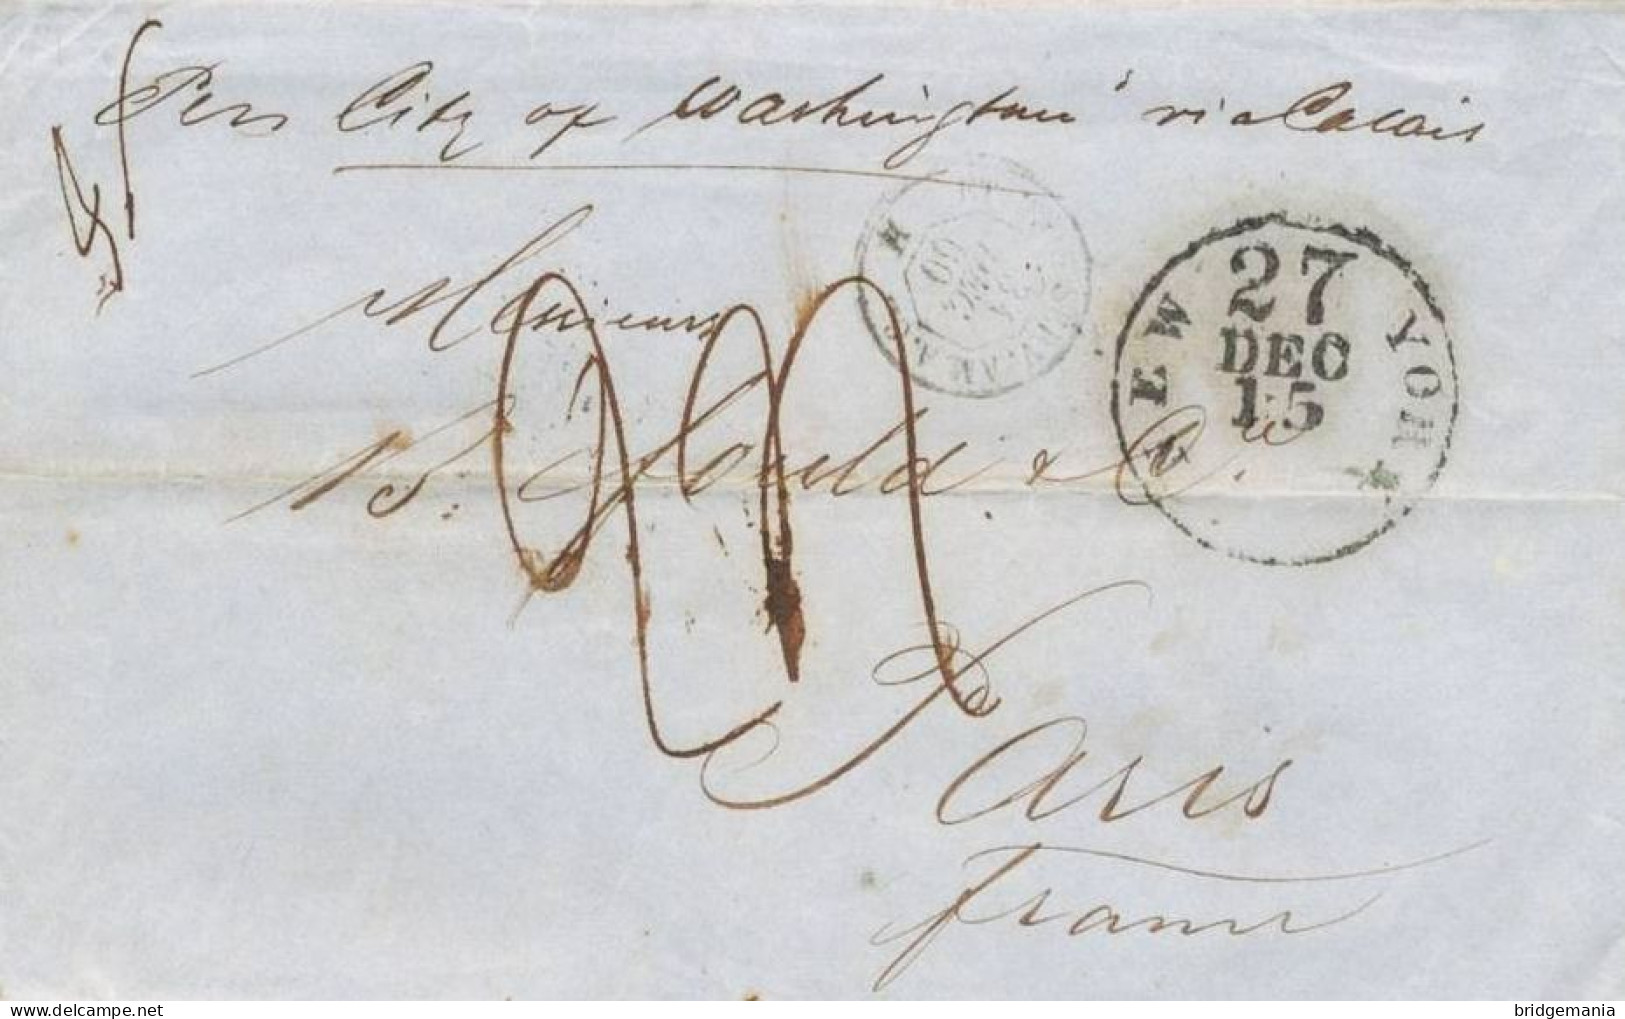 Per City of Washington" via Calais
Monsieur
B. Gould & Co.
Paris
France
NEW YORK
27
DEC
15
60
bridgemania